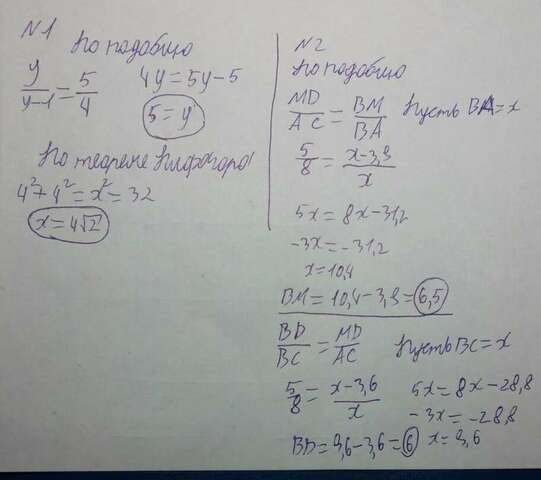 N1
По подобию
y/y-1 = 5/4
4y = 5y-5
5 = y
По теореме Пифагора
4²+4² = x² = 32
x = 4√2
N2
По подобию
MD/AC = BM/BA Пусть BA = x
5/8 = x-3,9/x
5x = 8x-31,2
-3x = -31,2
x = 10,4
BM = 10,4-3,9 = 6,5
BD/BC = MD/AC Пусть BC = x
5/8 = x-3,6/x
5x = 8x-28,8
-3x = -28,8
x = 9,6
BD = 9,6-3,6 = 6